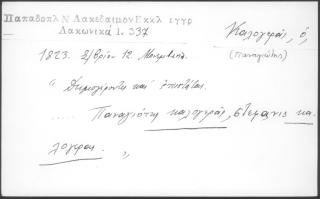 Παπαδοπλ Ν Λακεδαιμον Εκκλ εγγρ
Λακωνικά 1. 337
Καλογεράς, ὁ,
(Παναγιώτης)
1823. 8/βρίου 12. Μονεμβασία.
" Δημογέροντες καὶ ἐπιστάται
..... Παναγιότης καλογεράς, στεμανις κα
λογερας. "